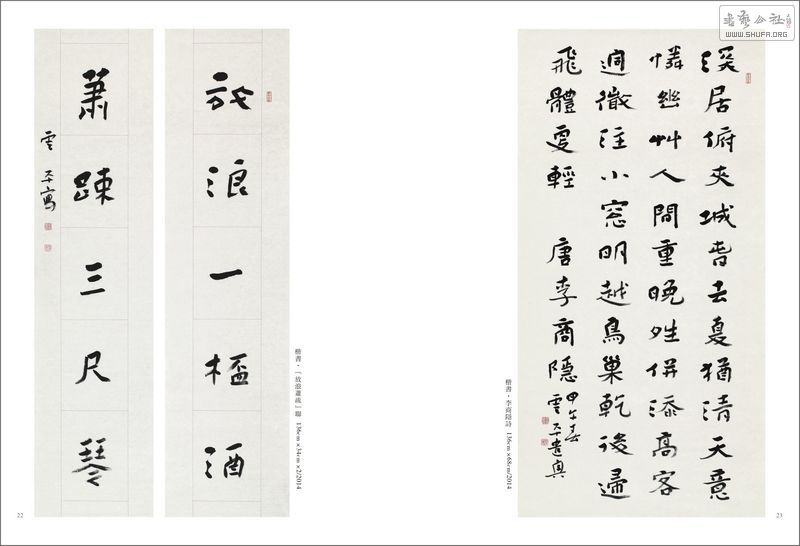 書藝公社
WWW.SHUFA.ORG
深居俯夾城旹去夏猶清天意
憐幽艸人間重晚併添高
迥微注小窓明越鳥巢乾後歸
飛體更輕 唐李商隱
甲午春
雲平遣興
楷書・李商隱詩 136cm×68cm/2014
23
放浪一酒
蕭疎三尺琴
雲平寫
楷書・「放浪蕭疏」聯 136cm×34cm×2/2014
22